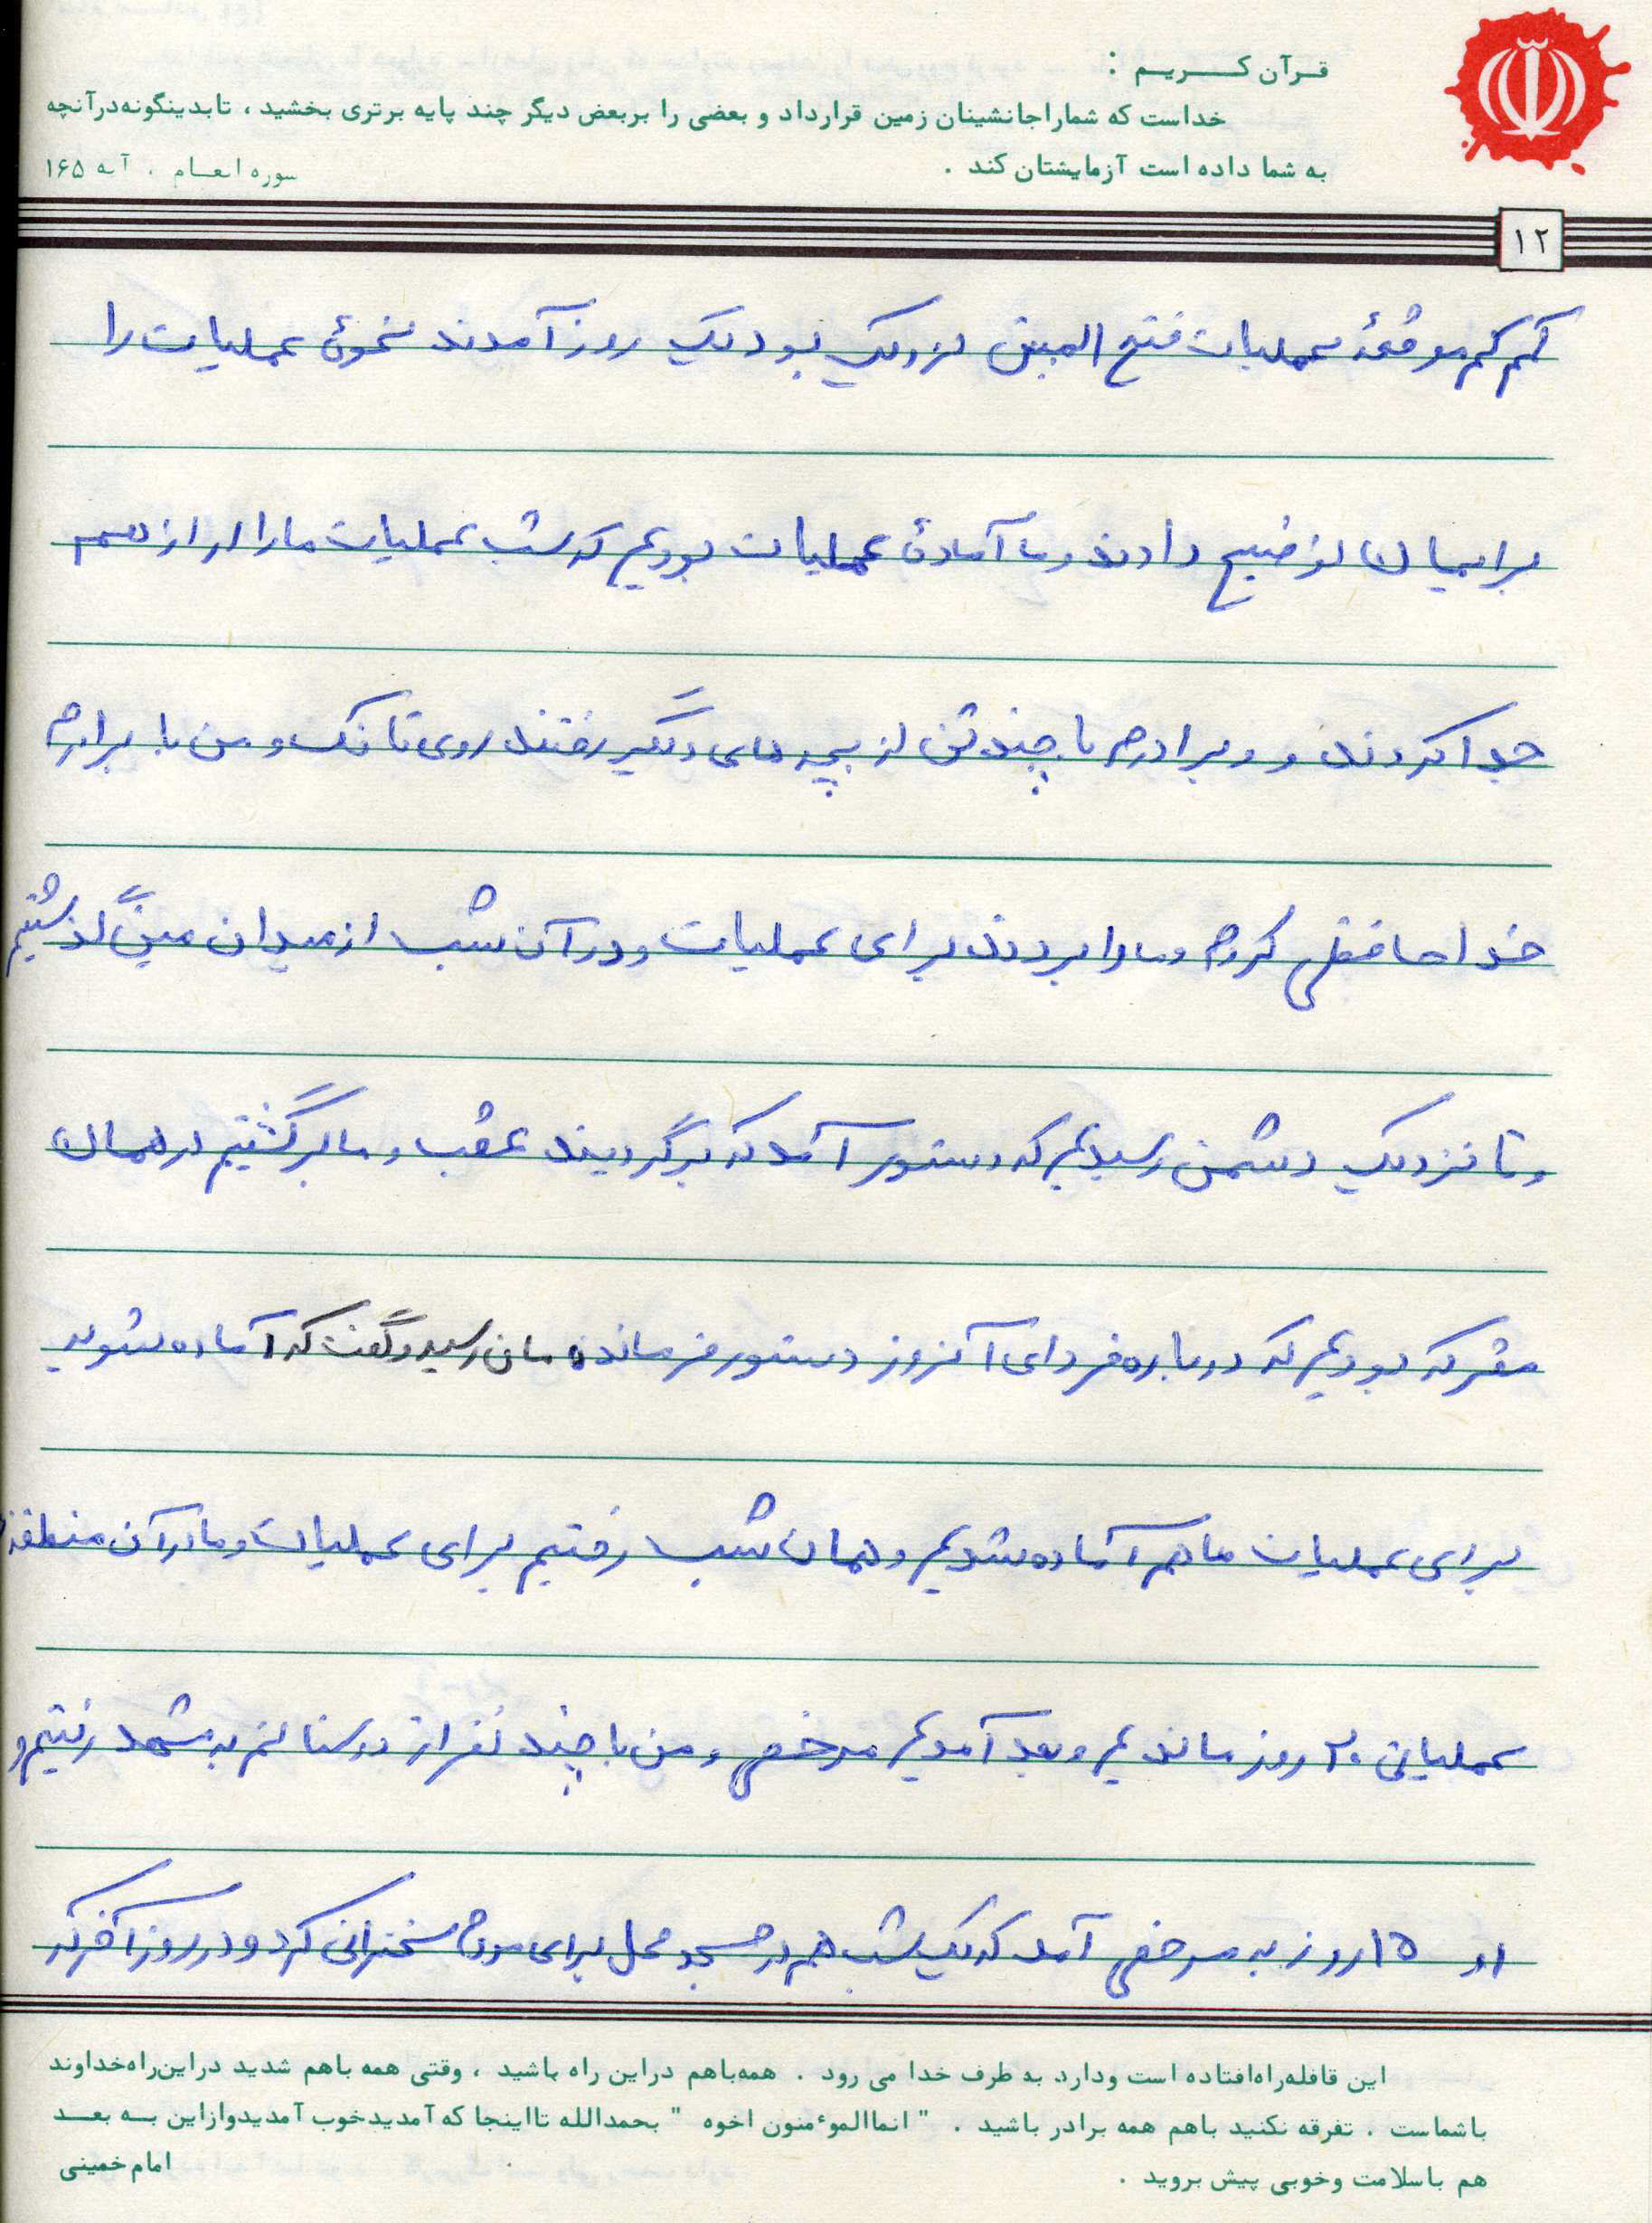 قرآن کریم :
خداست که شمارا جانشینان زمین قرارداد و بعضی را بربعض دیگر چند پایه برتری بخشید ، تابدینگونه درآنچه
به شما داده است آزمایشتان کند .
سوره انعام ، آیه ۱۶۵
۱۲
کم کم موقعهٔ عملیات فتح المبین نزدیک بود یک روز آمدند نحوهٔ عملیات را
برایمان توضیح دادند و ما آمادهٔ عملیات بودیم که شب عملیات ما را از هم
جدا کردند و برادرم با چند تن از بچه های دیگر رفتند روی تانک و من با برادرم
خداحافظی کردم و ما را بردند برای عملیات و در آن شب از میدان مین گذشتیم
و تا نزدیک دشمن رسیدیم که دستور آمد که برگردیند عقب و ما برگشتیم در همان
مقر که بودیم که دوباره فردای آنروز دستور فرمانده مان رسید و گفت که آماده شوید
برای عملیات ما هم آماده شدیم و همان شب رفتیم برای عملیات و ما در آن منطقه
عملیاتی ۲۰ روز ماندیم و بعد آمدیم مرخصی و من با چند نفر از دوستانم به مشهد رفتیم و
او ۱۵ روز به مرخصی آمد که یک شب هم در مسجد محل برای مردم سخنرانی کرد و در روز آخر که
این قافله راه افتاده است ودارد به طرف خدا می رود . همه باهم دراین راه باشید ، وقتی همه باهم شدید دراین راه خداوند
باشماست . تفرقه نکنید باهم همه برادر باشید . " انما الموٴمنون اخوه " بحمدالله تااینجا که آمدیدخوب آمدیدوازاین به بعد
هم باسلامت وخوبی پیش بروید .
امام خمینی